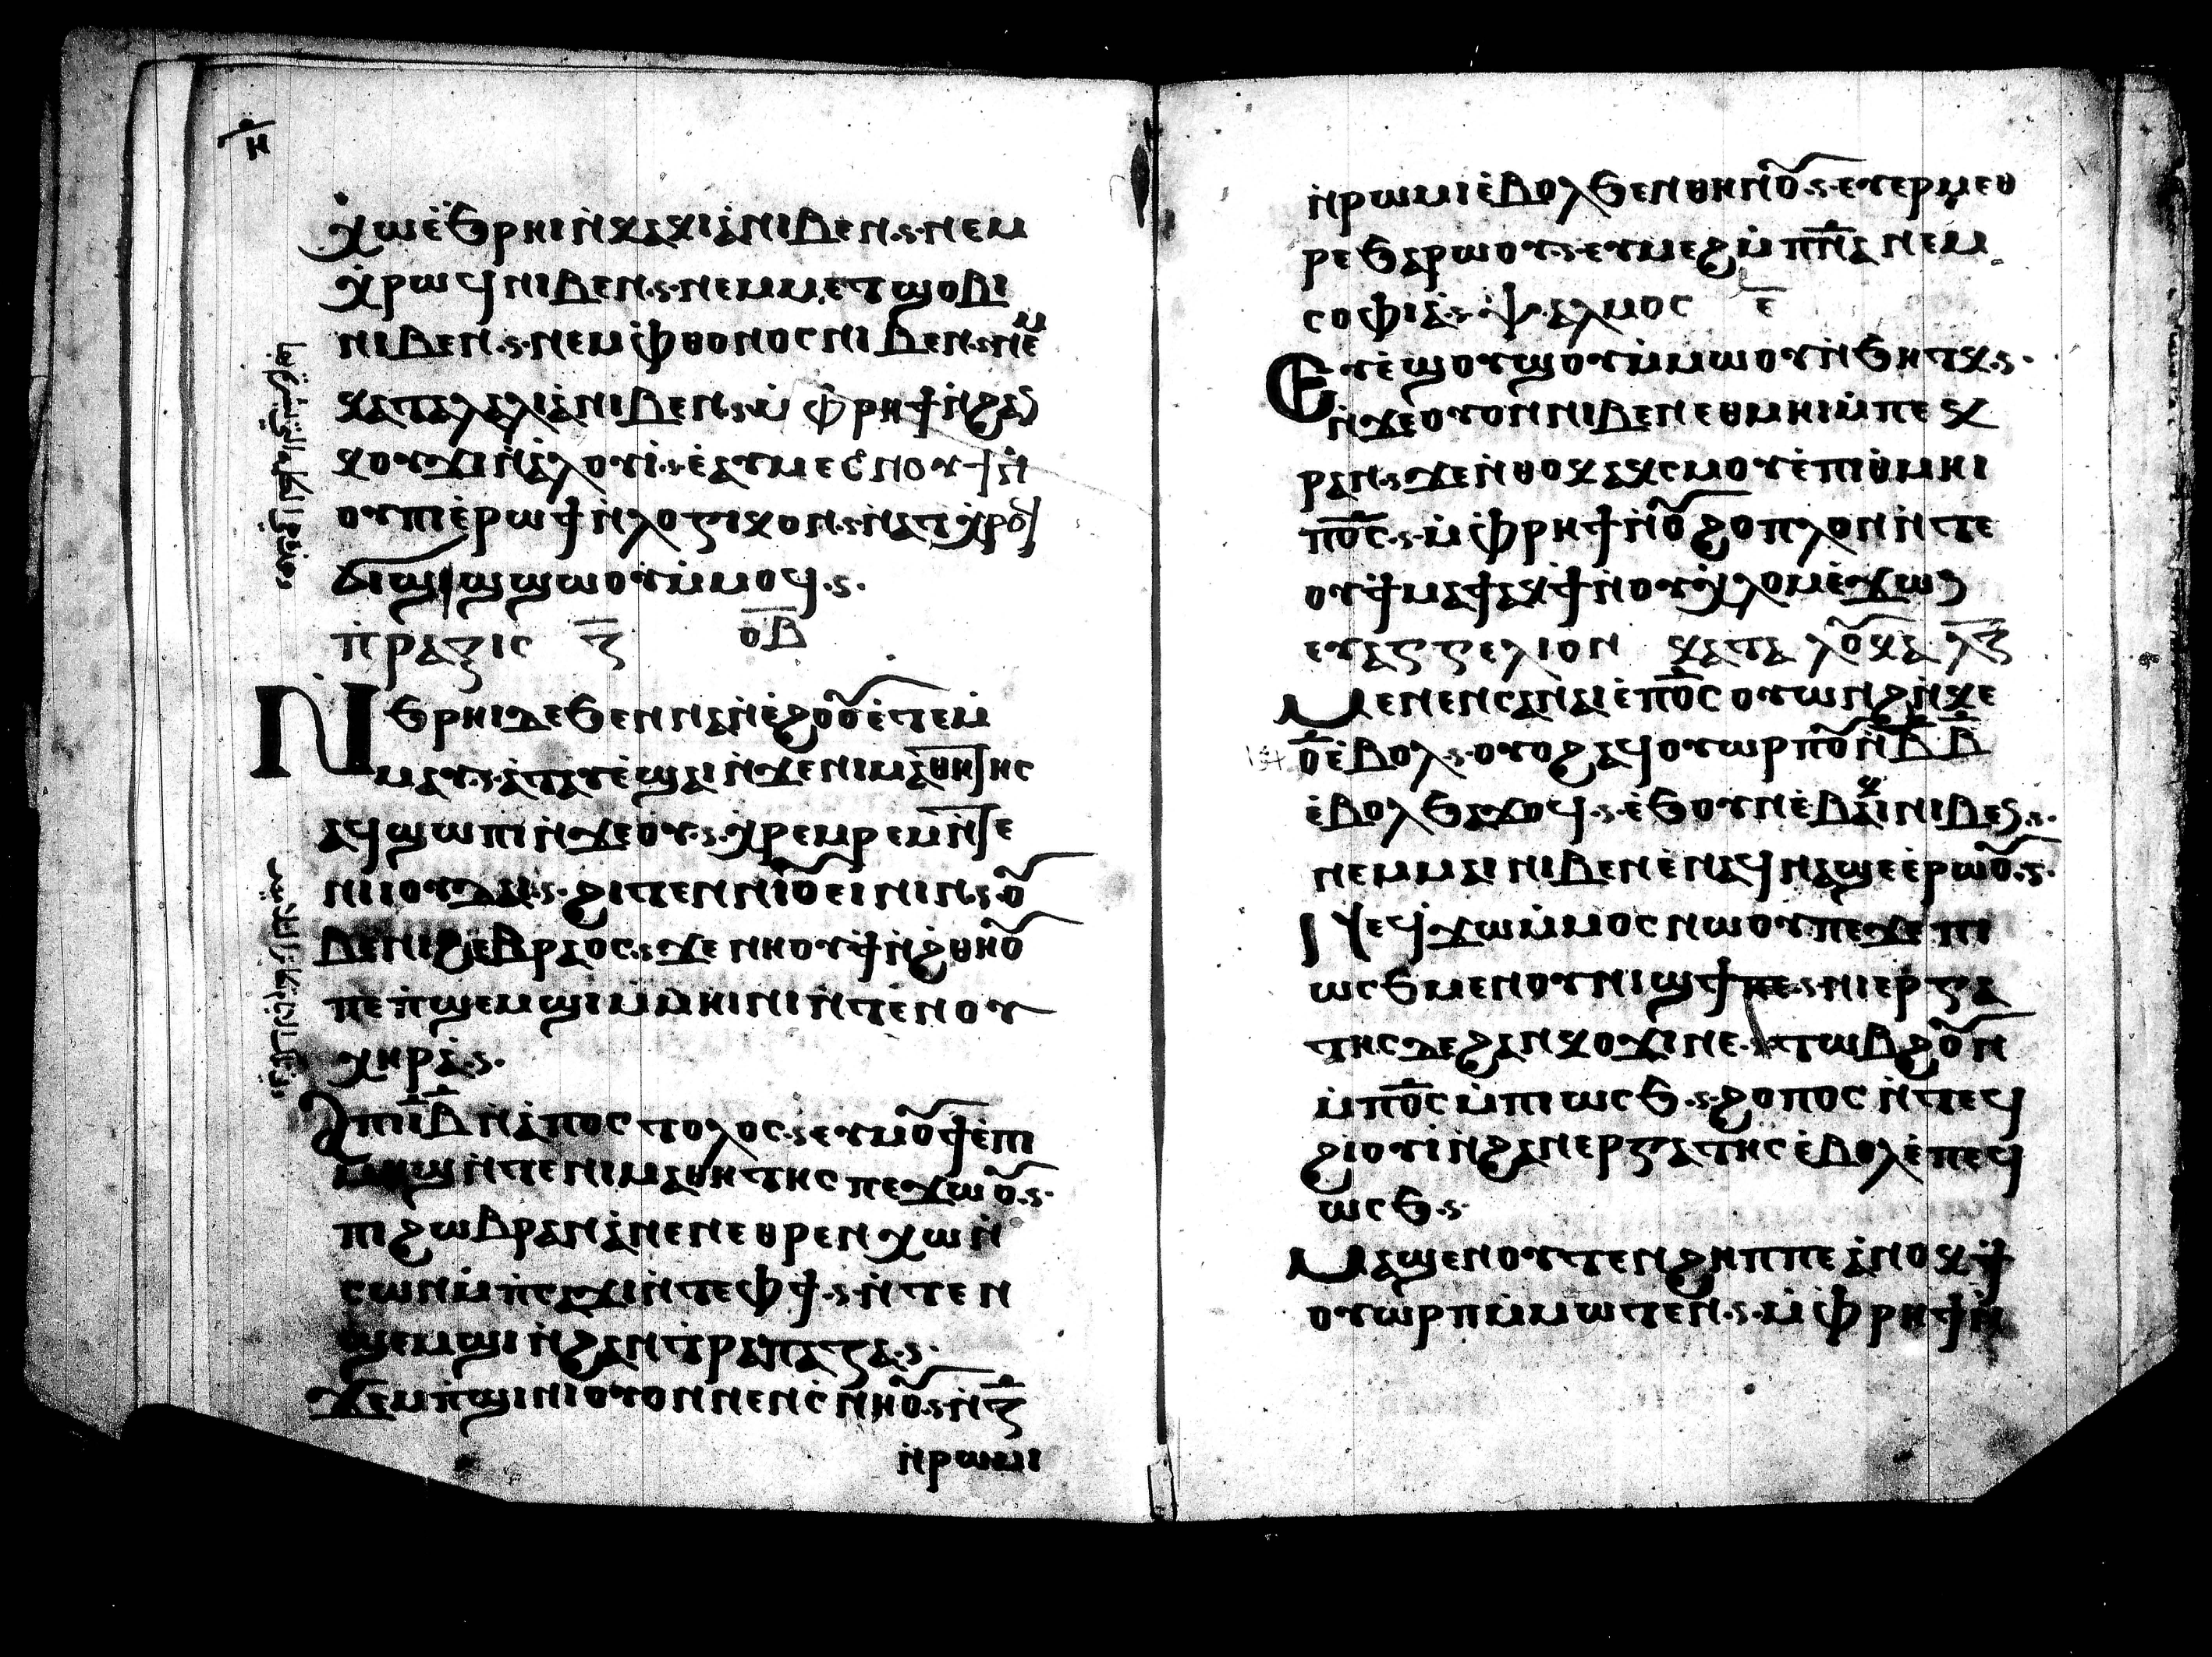 ⲏ̅
ⲭⲱⲉ̇ϧⲣⲏⲓⲛ̇ⲕⲁⲕⲓⲁ̇ⲛⲓⲃⲉⲛ·ⲋ·ⲛⲉⲙ
ⲭ̇ⲣⲱϥⲛⲓⲃⲉⲛ·ⲋ·ⲛⲉⲙⲙⲉⲧϣⲟⲃⲓ
ⲛⲓⲃⲉⲛ·ⲋ·ⲛⲉⲙⲫ̇ⲑⲟⲛⲟⲥⲛⲓⲃⲉⲛ·ⲋⲛⲉⲙ
ⲕⲁⲧⲁⲗⲁⲗⲓⲁ̇ⲛⲓⲃⲉⲛ·ⲋ·ⲙ̇ⲫ̇ⲣⲏϯⲛ̇ϩⲁⲛ
ⲕⲟⲩϫⲓⲛ̇ⲁ̇ⲗⲟⲩⲓ̇·ⲋⲉ̇ⲁⲩⲙⲉⲥⲛⲟⲩϯⲛ̇
ⲟⲩⲡⲓⲉ̇ⲣⲱϯⲛ̇ⲗⲟⲅⲓⲕⲟⲛ·ⲋⲛ̇ⲁⲧⲭ̇ⲣⲟϥ
ϭⲓϣϣϣⲱⲟⲩⲙ̇ⲙⲟϥ·ⲋ·
ⲡ̇ⲣⲁⲝⲓⲥ ⲍ̅ ⲟ̅ⲃ̅
Ⲛϧⲣⲏⲓⲇⲉϧⲉⲛⲛⲁⲓⲉ̇ϩⲟⲟⲩⲉ̇ⲧⲉⲙ̇
ⲙⲁⲩ·ⲋ·ⲁ̇ⲧⲁⲩⲉ̇ϣⲁⲓⲛ̇ϫⲉⲛⲓⲙⲁ̇ⲑⲏⲧⲏⲥ
ⲁϥϣⲱⲡⲓⲛ̇ϫⲉⲟⲩ·ⲋ·ⲭ̇ⲣⲉⲙⲣⲉⲙⲛ̇ⲧⲉ
ⲛⲓⲓⲟⲩⲇⲁⲓ·ⲋ·ϩⲓⲧⲉⲛⲛⲓⲟ̅ⲉⲓⲛⲓⲛ·ⲋ·ⲟ̅
ⲃⲉⲛⲓϩⲉⲃⲣⲁⲟⲥ·ⲋϫⲉⲛⲛⲟⲩϯⲛ̇ϩⲑⲏⲟ̅
ⲡⲉⲡ̇ϣⲉⲙϣⲓⲙ̇ⲙⲏⲓⲛⲓⲛ̇ⲧⲉⲛⲟⲩ
ⲭⲏⲣⲁ·ⲋ·
Ⲁⲡⲓⲓ̅ⲃ̅ⲛ̇ⲁ̇ⲡⲟⲥⲧⲟⲗⲟⲥ·ⲋⲉⲩⲙⲟ̅ϯⲉ̇ⲡⲓ
ⲙⲏϣⲛ̇ⲧⲉⲛⲓⲙⲁⲑⲏⲧⲏⲥⲡⲉϫⲱⲟ̅·ⲋ·
ⲡⲓϩⲱⲃⲣⲁⲛⲁ̇ⲛⲉⲛⲉⲑⲣⲉⲛⲭⲱⲛ̇
ⲥⲱⲛⲙ̇ⲡ̇ⲥⲁϫⲓⲛ̇ⲧⲉⲫϯ·ⲋ·ⲛ̇ⲧⲉⲛ
ϣⲉⲙϣⲓⲛ̇ϩⲁⲛⲧ̇ⲣⲁⲡⲁⲍⲁ·ⲋ·
ϫⲉⲙⲡ̇ϣⲓⲛⲓⲟⲩⲟⲛⲛⲉⲛⲥ̇ⲛⲏⲟ̅·ⲋⲛ̇ⲍ̅
ⲛ̇ⲣⲱⲙⲓ
ⲛ̇ⲣⲱⲙⲓⲉ̇ⲃⲟⲗϧⲉⲛⲑⲏⲛⲟ̅·ⲋ·ⲉⲩⲉⲣⲙⲉⲑ
ⲣⲉϧⲁⲣⲱⲟⲩ·ⲋ·ⲉⲩⲙⲉϩⲙ̇ⲡ̅ⲛ̅ⲁⲛⲉⲙ
ⲥⲟⲫⲓⲁ·ⲋ· ⲯⲁⲗⲙⲟⲥ ⲉ̅
Ⲉⲩⲉ̇ϣⲟⲩϣⲟⲩⲙ̇ⲙⲱⲟⲩⲛ̇ϧⲏⲧⲕ·ⲋ·
ⲛ̇ϫⲉⲟⲩⲟⲛⲛⲓⲃⲉⲛⲉⲑⲙⲏⲓⲙ̇ⲡⲉⲕ
ⲣⲁⲛ·ⲋϫⲉⲛ̇ⲑⲟⲕⲁⲕⲥⲙⲟⲩⲉ̇ⲡⲓⲑ̇ⲙⲏⲓ
ⲡⲟ̅ⲥ̅·ⲋ·ⲙ̇ⲫ̇ⲣⲏϯⲛ̇ⲟ̅ϩⲟⲡⲗⲟⲛⲛ̇ⲧⲉ
ⲟⲩϯⲙⲁϯⲁⲕϯⲛ̇ⲟⲩⲭ̇ⲗⲟⲙⲉ̇ϫⲱⲛ
ⲉⲩⲁⲅⲅⲉⲗⲓⲟⲛ ⲕⲁⲧⲁ ⲗⲟ̅ⲕⲁ ⲗ̅ⲍ̅
Ⲙⲉⲛⲉⲛⲥⲁⲛⲁⲓⲉ̇ⲡⲟ̅ⲥ̅ⲟⲩⲱⲛϩⲛ̇ⲕⲉ
ⲟ̅ⲉ̇ⲃⲟⲗ·ⲋ·ⲟⲩⲟϩⲁϥⲟⲩⲱⲣⲡⲟ̅ⲛ̇ⲃ̅ⲃ̅
ⲉ̇ⲃⲟⲗϧⲁϫⲱϥ·ⲋ·ⲉ̇ϧⲟⲩⲛⲉ̇ⲃⲁⲕⲓⲛⲓⲃⲉⲛ·ⲋ·
ⲛⲉⲙⲙⲁⲓⲛⲓⲃⲉⲛⲉ̇ⲛⲁϥⲛⲁϣⲉⲉ̇ⲣⲱⲟ̅·ⲋ·
Ⲛⲉϥϫⲱⲙ̇ⲙⲟⲥⲛⲱⲟⲩⲡⲉϫⲉⲡⲓ
ⲱⲥϧⲙⲉⲛⲟⲩⲛⲓϣϯⲡⲉ·ⲋ·ⲛⲓⲉⲣⲅⲁ
ⲧⲏⲥⲇⲉϩⲁⲛⲕⲟϫⲓⲛⲉ·ⲋ·ⲧⲱⲃϩⲟ̅ⲛ
ⲙ̇ⲡⲟ̅ⲥ̅ⲙ̇ⲡⲓⲱⲥϧ·ⲋ·ϩⲟⲡⲟⲥⲛ̇ⲧⲉϥ
ϩⲓⲟⲩⲓ̇ⲛ̇ϩⲁⲛⲉⲣⲅⲁⲧⲏⲥⲉ̇ⲃⲟⲗⲉ̇ⲡⲉϥ
ⲱⲥϧ·ⲋ·
Ⲙⲁϣⲉⲛⲟⲩⲧⲉⲛϩⲏⲡⲡⲉⲁ̇ⲛⲟⲕϯ
ⲟⲩⲱⲣⲡⲙ̇ⲙⲱⲧⲉⲛ·ⲋ·ⲙ̇ⲫ̇ⲣⲏϯⲛ̇